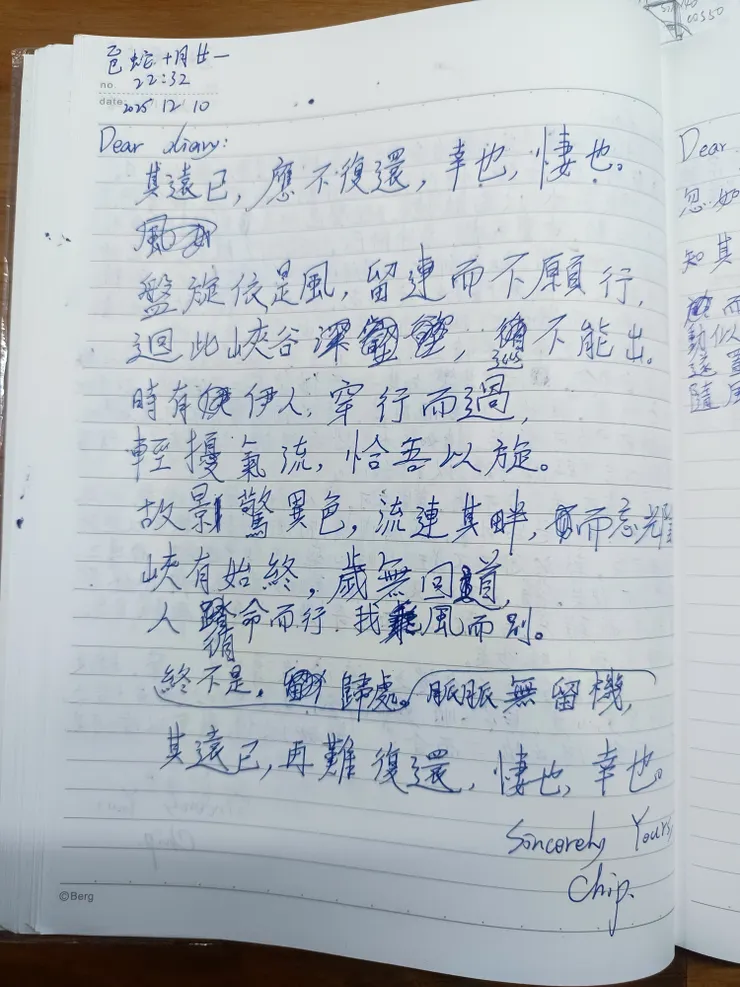 乙巳蛇十月廿一
no. 22:32
date 2025 12 10
Dear diary:
其遠已,應不復還,幸也,悽也。
風
盤旋依是風,留連而不願行,
迴此峽谷深,不能出。
時有伊人,穿行而過,
輕擾氣流,恰吾以旋。
故景驚異色,流連其畔,而忘光陰
峽有始終,歲無回道,
人循命而行,我乘風而別。
終不是,歸處。脈脈無留機,
其遠已,再難復還,悽也,幸也。
Sincerely Yours,
Chip.
©Berg
Dear
忽如
知其
而
動似
遠
隨風